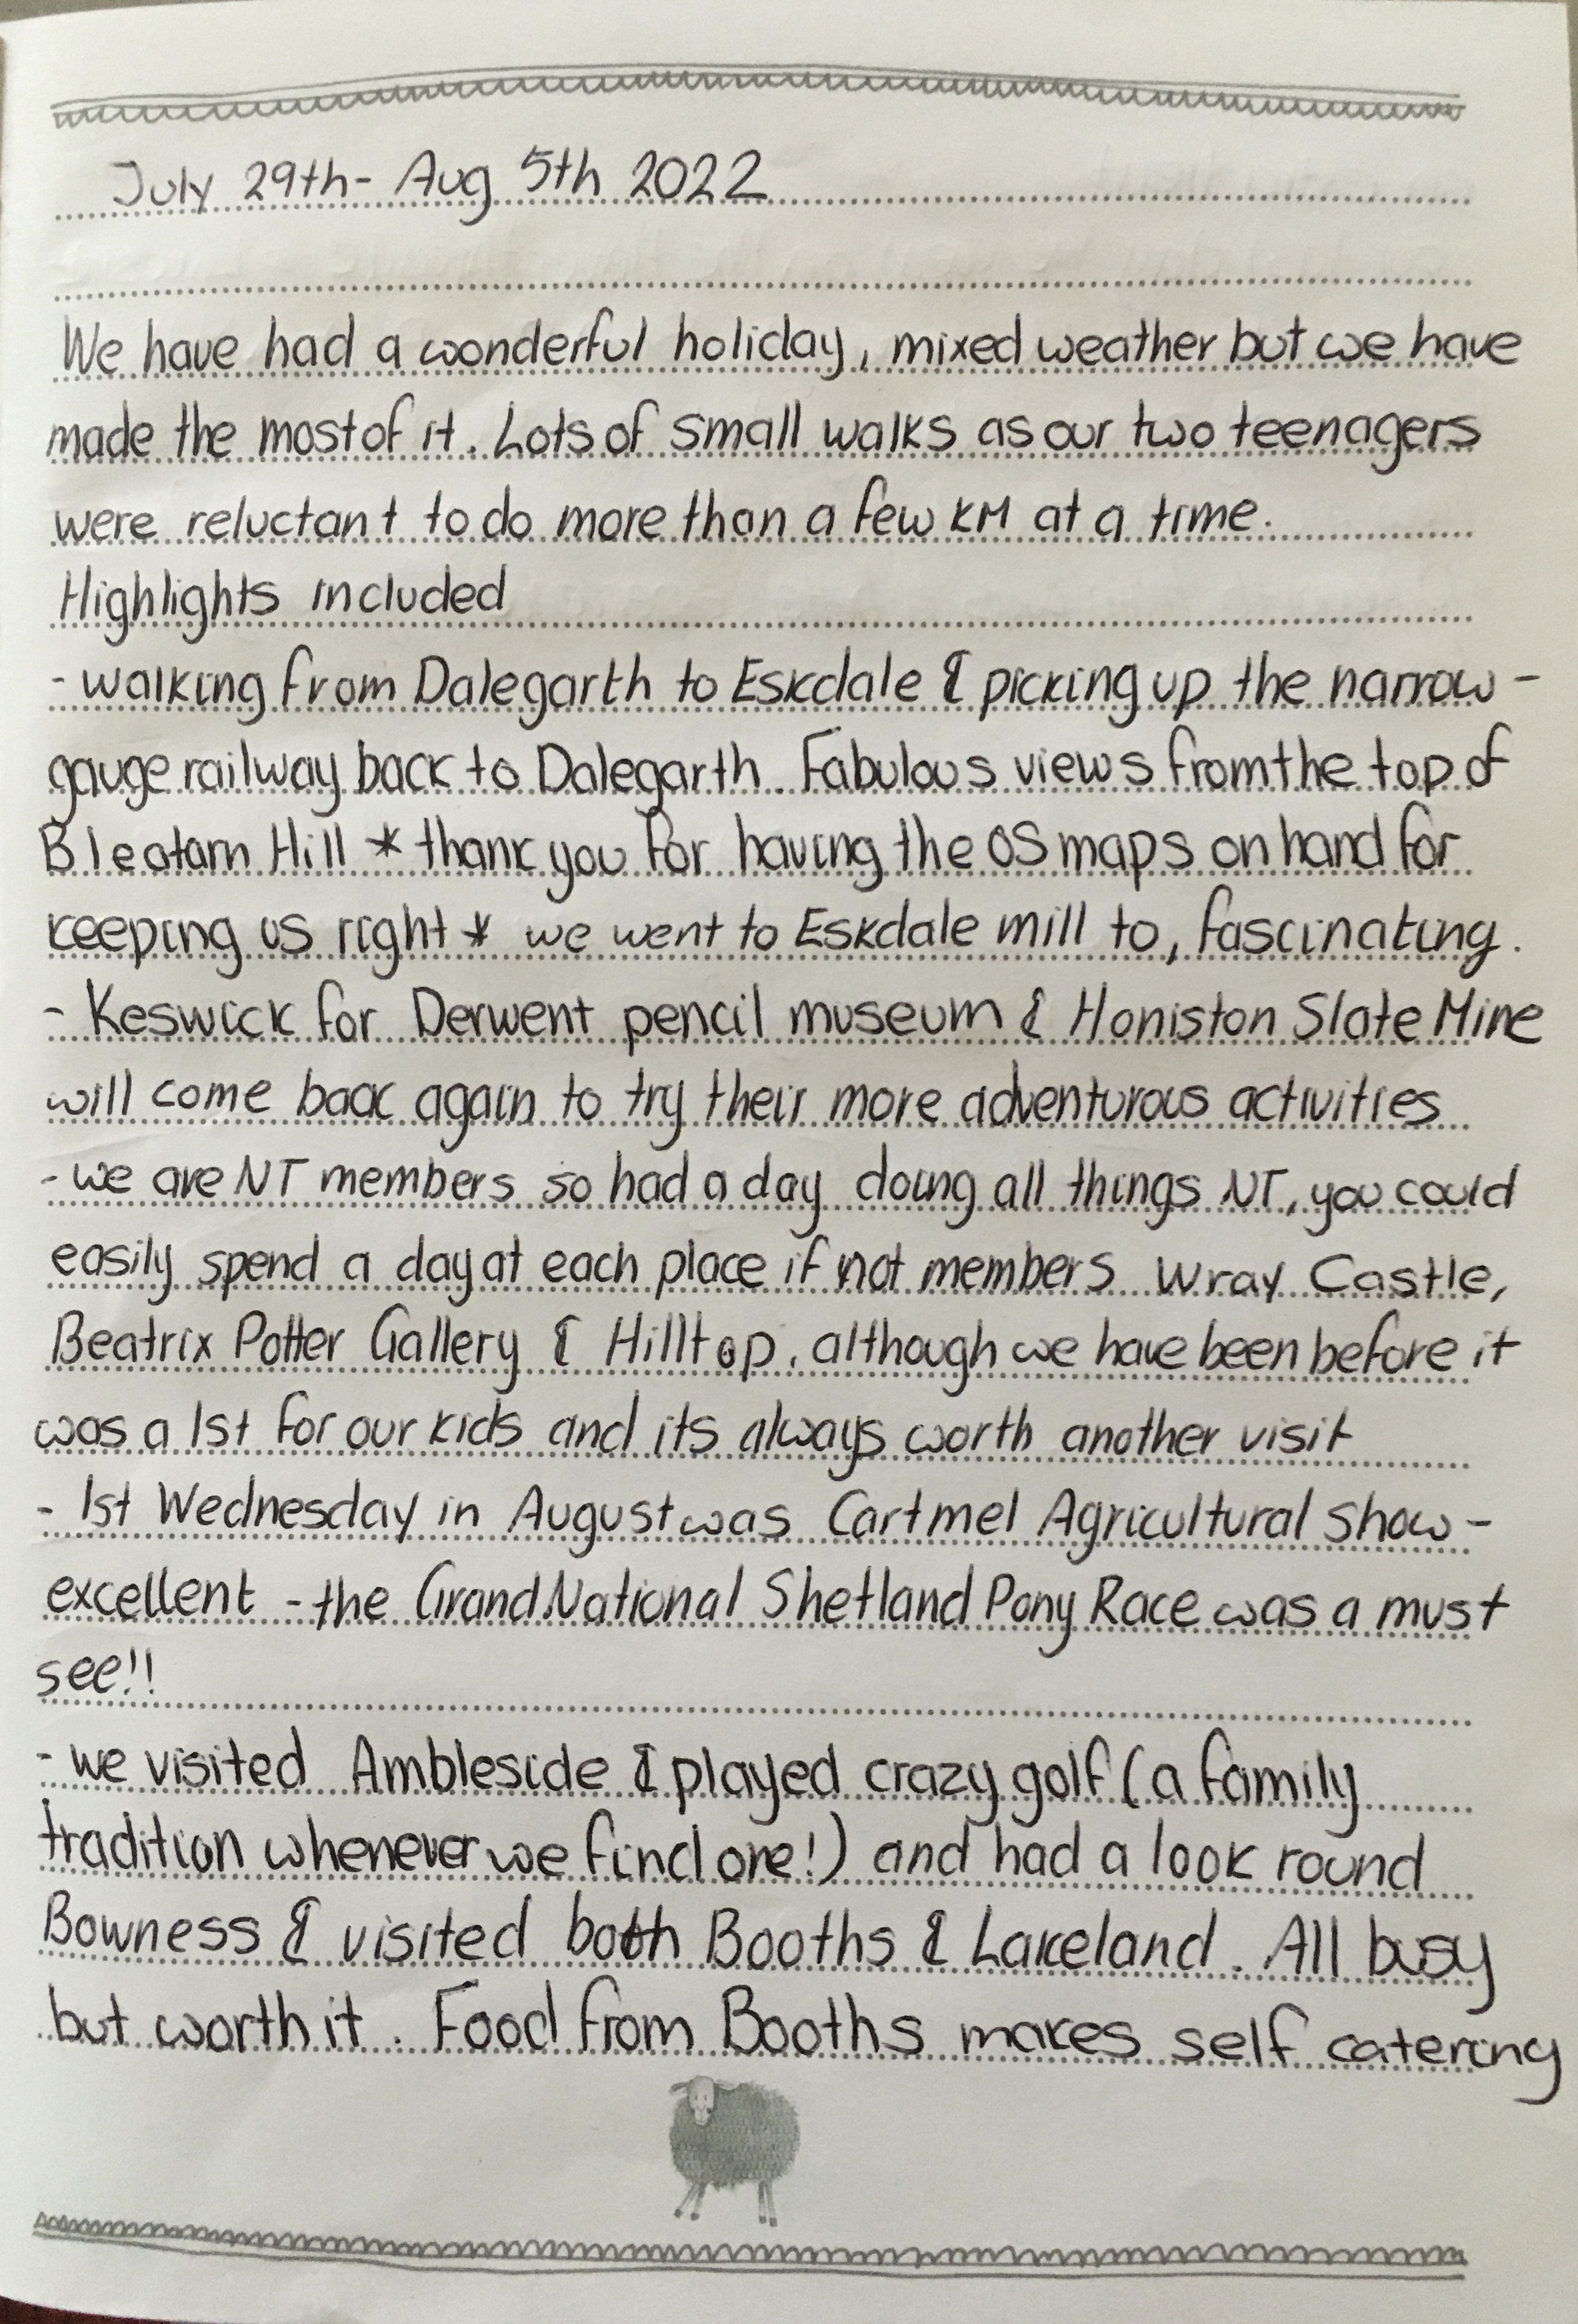 July 29th - Aug 5th 2022
We have had a wonderful holiday, mixed weather but we have
made the most of it. Lots of small walks as our two teenagers
were reluctant to do more than a few KM at a time.
Highlights included
- walking from Dalegarth to Eskdale & picking up the narrow -
gauge railway back to Dalegarth. Fabulous views from the top of
Bleatarn Hill * thank you for having the OS maps on hand for
keeping us right * we went to Eskdale mill to, fascinating.
- Keswick for Derwent pencil museum & Honiston Slate Mine
will come back again to try their more adventurous activities
- we are NT members so had a day doing all things NT, you could
easily spend a day at each place if not members Wray Castle,
Beatrix Potter Gallery & Hilltop, although we have been before it
was a 1st for our kids and its always worth another visit
- 1st Wednesday in August was Cartmel Agricultural show -
excellent - the Grand National Shetland Pony Race was a must
see!!
- we visited Ambleside & played crazy golf (a family
tradition whenever we find one!) and had a look round
Bowness & visited both Booths & Lakeland. All busy
but worth it. Food from Booths makes self catering